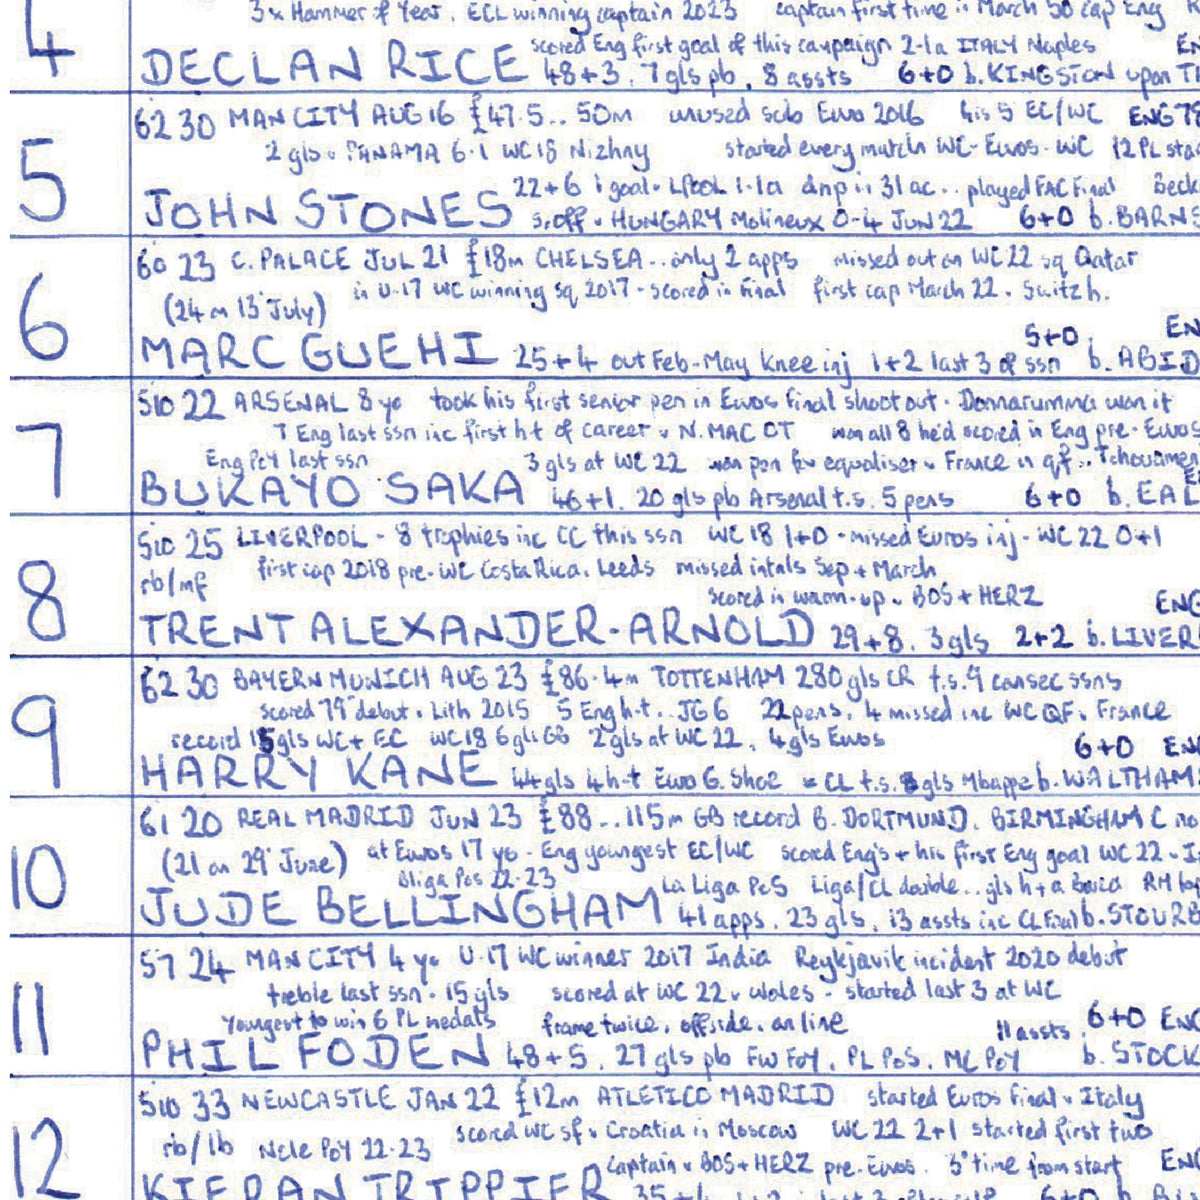 4
3x Hammer of Year. ECL winning captain 2023 captain first time in March 50 cap Eng
scored Eng first goal of this campaign 2-1a ITALY Naples
DECLAN RICE 48+3. 7gls pb. 8 assts 6+0 b. KINGSTON upon
5
62 30 MAN CITY AUG 16 £47.5... 50m unused sub Euro 2016 his 5 EC/WC ENG
2 gls v PANAMA 6-1 WC18 Nizhny started every match WC-Euros-WC 12 PL
22+6 1 goal v LPOOL 1-1a dnp in 31 ac.. played FAC Final
JOHN STONES s.off v HUNGARY Molineux 0-4 Jun 22 6+0 b. BARNS
6
60 23 C. PALACE JUL 21 £18m CHELSEA.. only 2 apps missed out on WC22 sq Qatar
in U-17 WC winning sq 2017 - scored in final first cap March 22 v Switz h.
(24 on 13 July)
5+0 EN
MARC GUEHI 25+4 out Feb-May knee inj 1+2 last 3 of ssn b. ABID
7
510 22 ARSENAL 8yo took his first senior pen in Euros final shootout - Donnarumma won it
7 Eng last ssn inc first h-t of career v N. MAC OT won all 8 he'd scored in Eng pre-Euros
Eng PoY last ssn 3 gls at WC 22 won pen for equaliser v France in qf.. Tchouamen
BUKAYO SAKA 46+1. 20 gls pb Arsenal t.s. 5 pens 6+0 b. EAL
8
510 25 LIVERPOOL - 8 trophies inc CC this ssn WC 18 1+0 - missed Euros inj - WC 22 0+1
rb/mf first cap 2018 pre-WC Costa Rica. Leeds missed intnls Sep + March
scored in warm-up v BOS+HERZ ENG
TRENT ALEXANDER-ARNOLD 29+8. 3gls 2+2 b. LIVER
9
62 30 BAYERN MUNICH AUG 23 £86.4m TOTTENHAM 280 gls CR t.s. 9 consec ssns
scored 79" debut v Lith 2015 5 Eng h-t.. JG6 22 pens. 4 missed inc WC QF v France
record 15gls WC+EC WC18 6gls GB 2gls at WC 22. 4gls Euros 6+0 EN
HARRY KANE 44gls 4h-t Euro G. Shoe = CL t.s. 8gls Mbappe b. WALTHAM
10
61 20 REAL MADRID JUN 23 £88...115m GB record B. DORTMUND. BIRMINGHAM C
(21 on 29 June) at Euros 17 yo - Eng youngest EC/WC scored Eng's + his first Eng goal WC 22 v
Bliga PoS 22-23 La Liga PoS Liga/CL double.. gls h+a Barca RM
JUDE BELLINGHAM 41 apps. 23 gls. 13 assts inc CL Final b. STOURB
11
57 24 MAN CITY 4 yo U-17 WC winner 2017 India Reykjavik incident 2020 debut
treble last ssn - 15 gls scored at WC 22 v Wales - started last 3 at WC
Youngest to win 6 PL medals frame twice. offside. on line 11 assts. 6+0 ENG
PHIL FODEN 48+5. 27 gls pb FW FoY. PL PoS. MC PoY b. STOCK
12
510 33 NEWCASTLE JAN 22 £12m ATLETICO MADRID started Euros final v Italy
rb/lb Ncle PoY 22-23 scored WC sf v Croatia in Moscow WC 22 2+1 started first two
captain v BOS+HERZ pre-Euros. 3" time from start ENG
KIERAN TRIPPIER